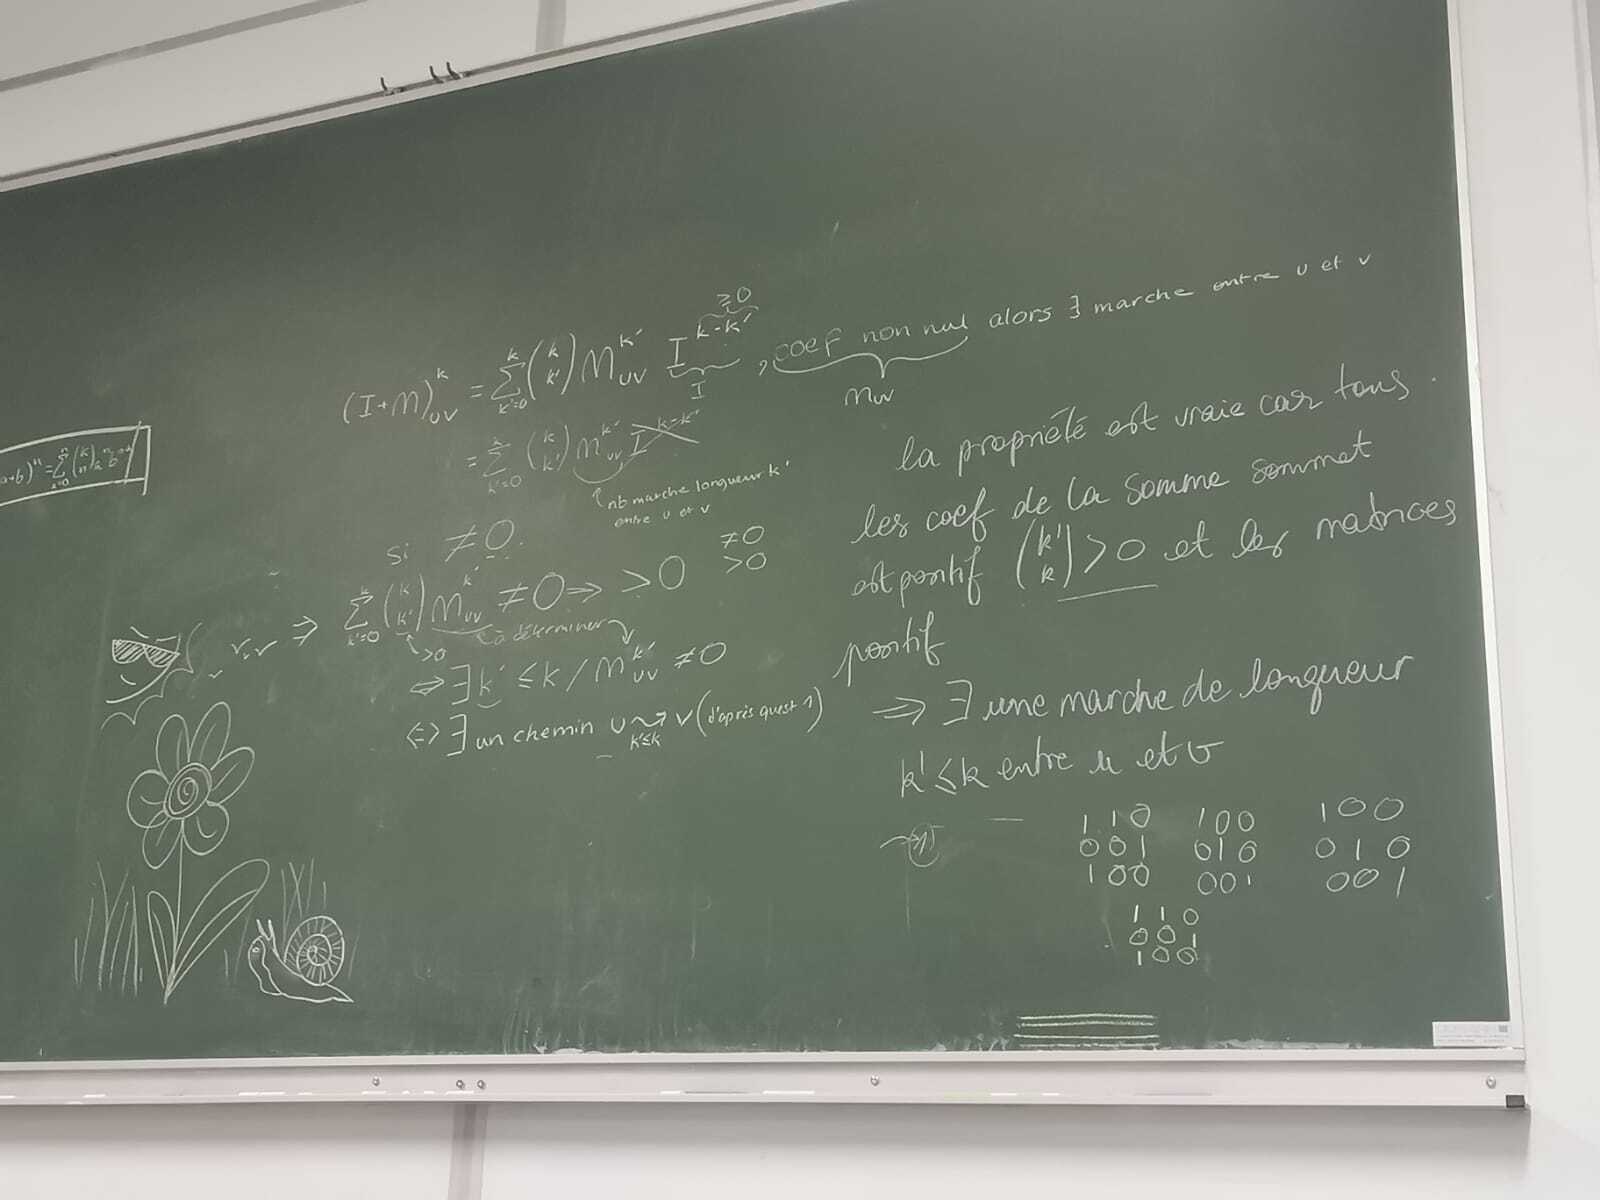 (a+b)ⁿ = Σ_{k=0}^{n} (k n) aᵏ bⁿ⁻ᵏ
(I+M)ᵏ_{uv} = Σ_{k'=0}^{k} (k k') M^{k'}_{uv} I^{k-k'} , coef non nul alors ∃ marche entre u et v
≥0
I
= Σ_{k'=0}^{k} (k k') M^{k'}_{uv} I^{k-k'}
↑ nb marche longueur k'
entre u et v
si ≠0.
≠0
>0
⇒ Σ_{k'=0}^{k} (k k') M^{k'}_{uv} ≠0 ⇒ >0
>0
à déterminer
⇔ ∃ k' ≤ k / M^{k'}_{uv} ≠0
⇔ ∃ un chemin u ⇝ v (d'après quest 1)
k'≤k
la propriété est vraie car tous
les coef de la somme sommet
est positif (k' k) >0 et les matrices
positif
⇒ ∃ une marche de longueur
k' ≤ k entre u et v
→ 1)
1 1 0 1 0 0 1 0 0
0 0 1 0 1 0 0 1 0
1 0 0 0 0 1 0 0 1
1 1 0
0 0 1
1 0 0